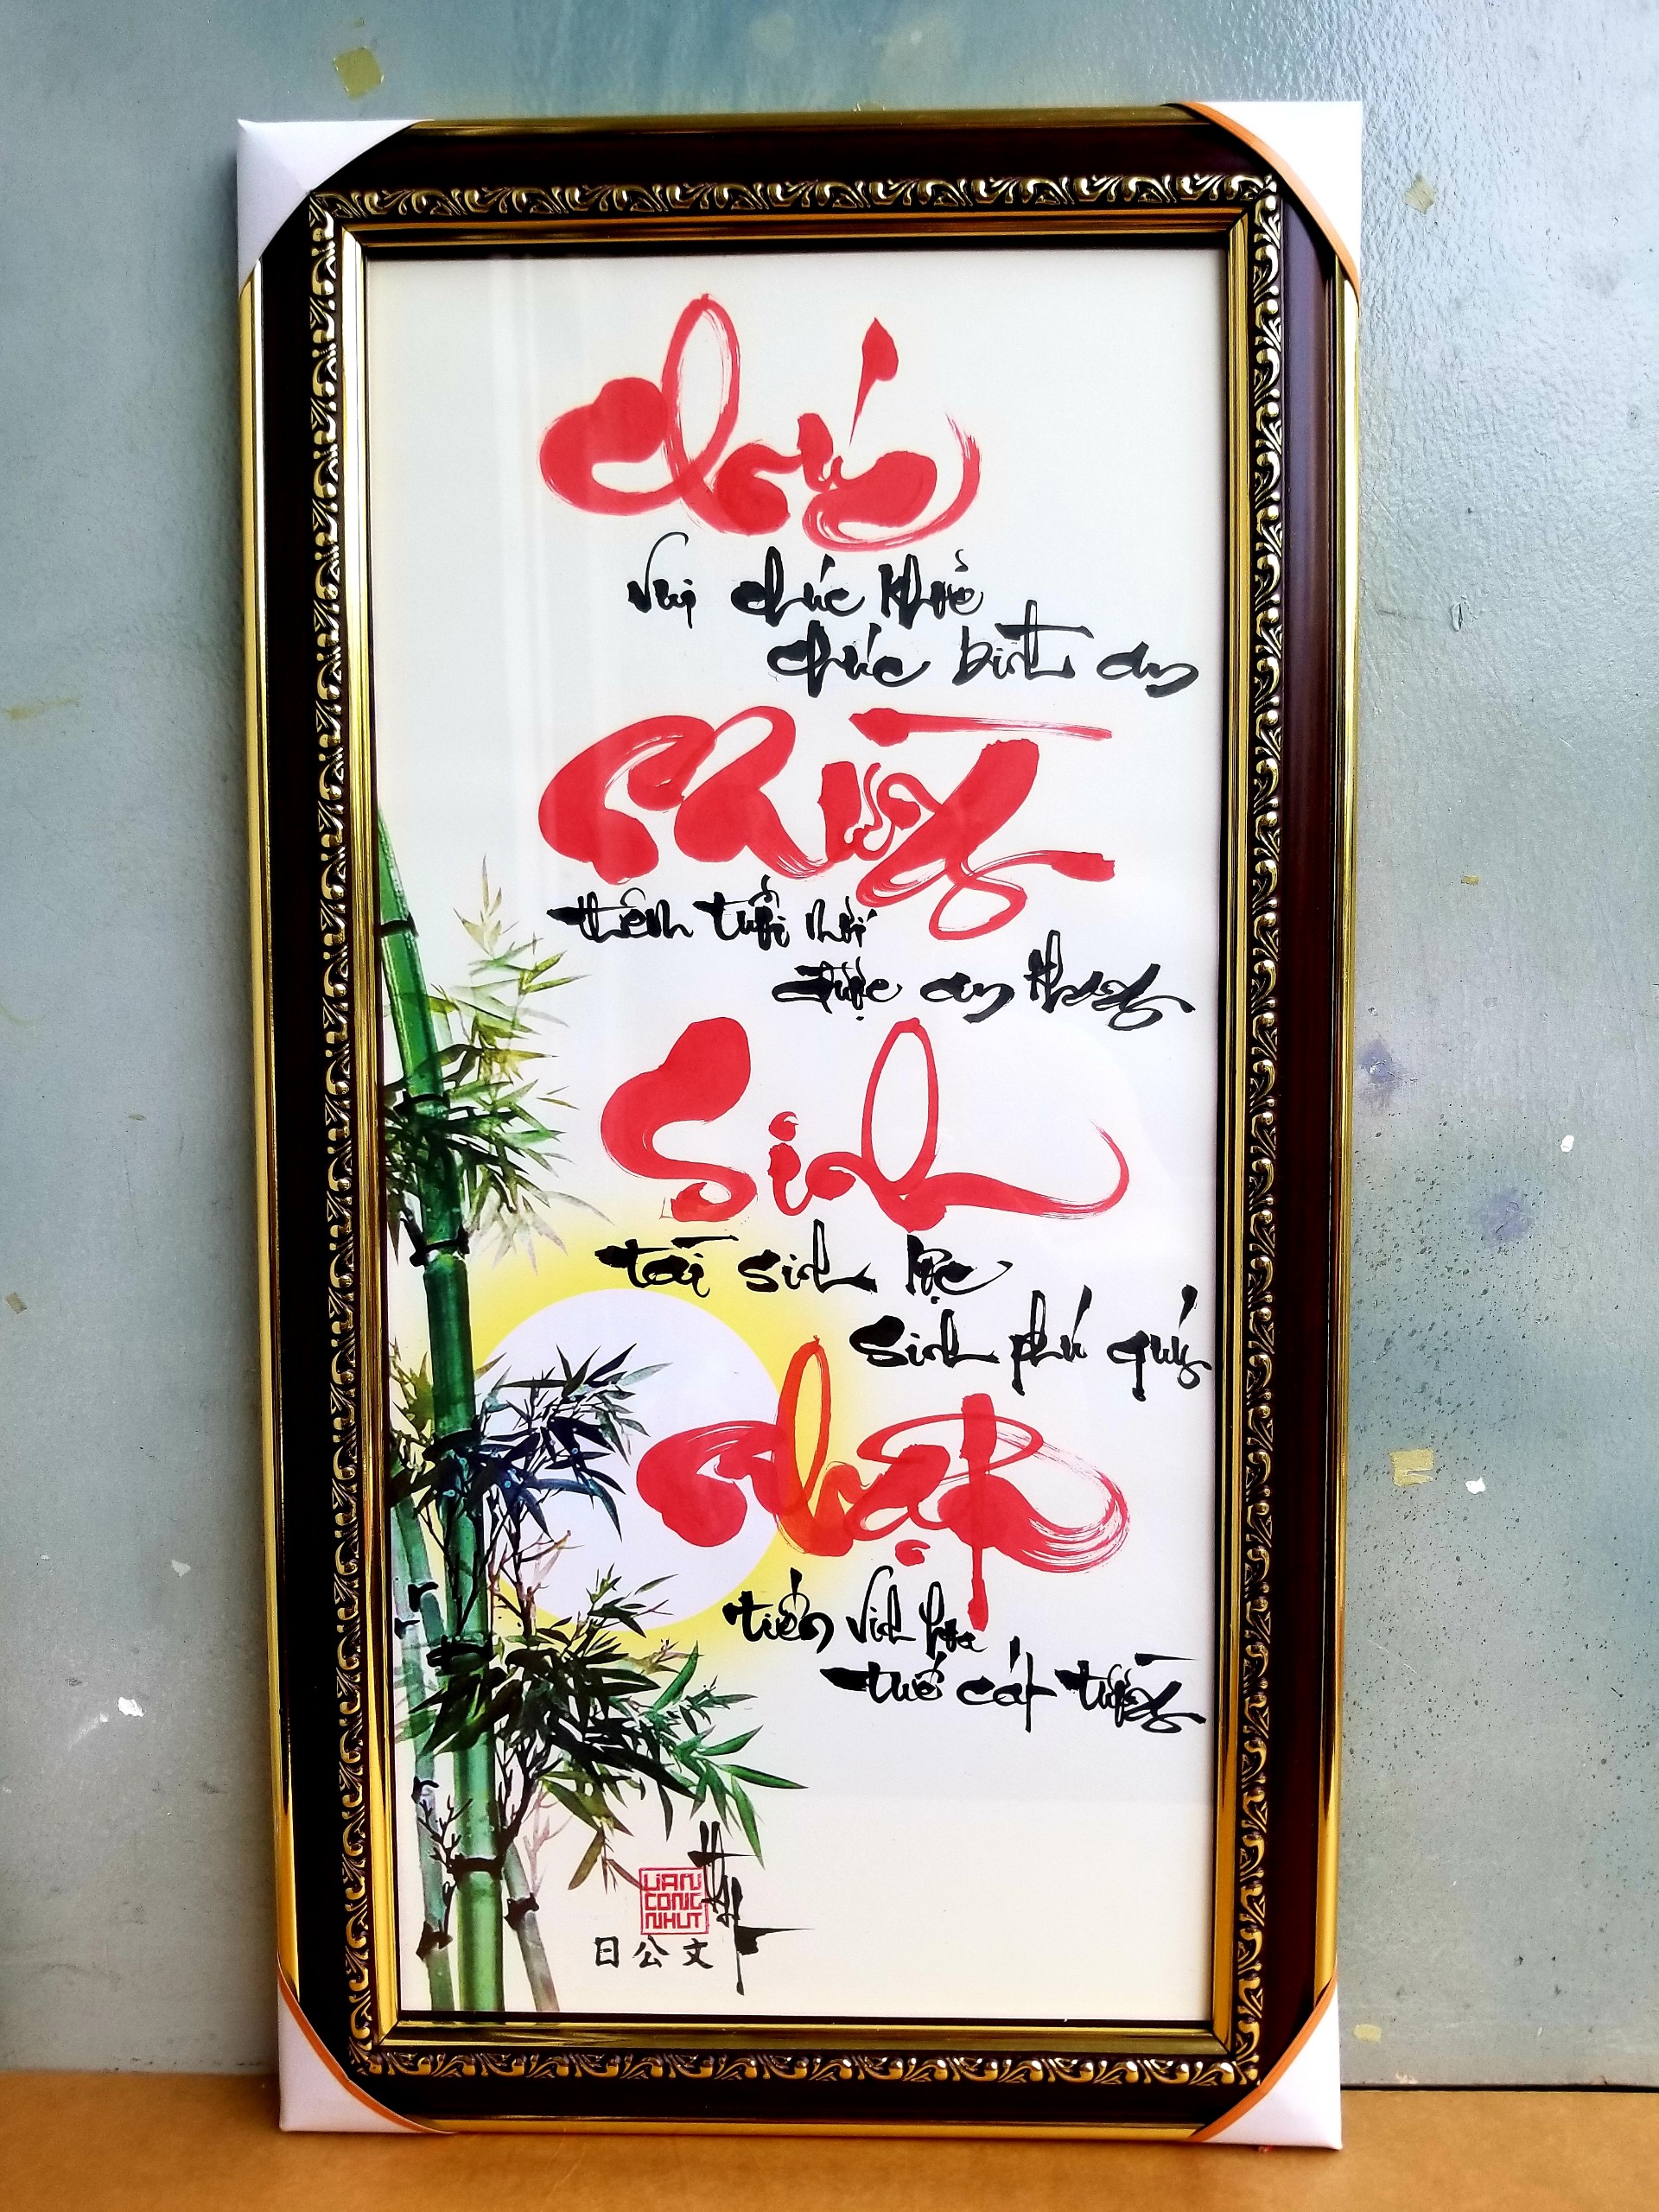 Chúc
vui chúc khỏe
chúc bình an
Mừng
thêm tuổi mới
được an khang
Sinh
tài sinh lộc
sinh phú quý
Nhật
tiến vinh hoa
tuế cát tường
VAN
CONG
NHUT
日公文